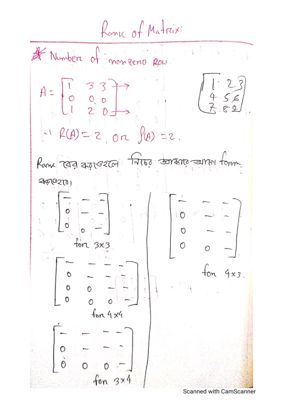 Rank of Matrix:
* Number of nonzero row
A = [ 1 3 3
0 0 0
1 2 0 ]
[ 1 2 3
4 5 6
7 8 9 ]
∴ R(A) = 2, or ρ(A) = 2.
Rank বের করতে হলে নিচের আকারে form
করতে হবে।
[ - - -
0 - -
0 0 - ]
for 3x3
[ - - -
0 - -
0 - -
0 0 - ]
for 4x3
[ - - - -
0 - - -
0 0 - -
0 0 0 - ]
for 4x4
[ - - - -
0 - - -
0 0 0 - ]
for 3x4
Scanned with CamScanner